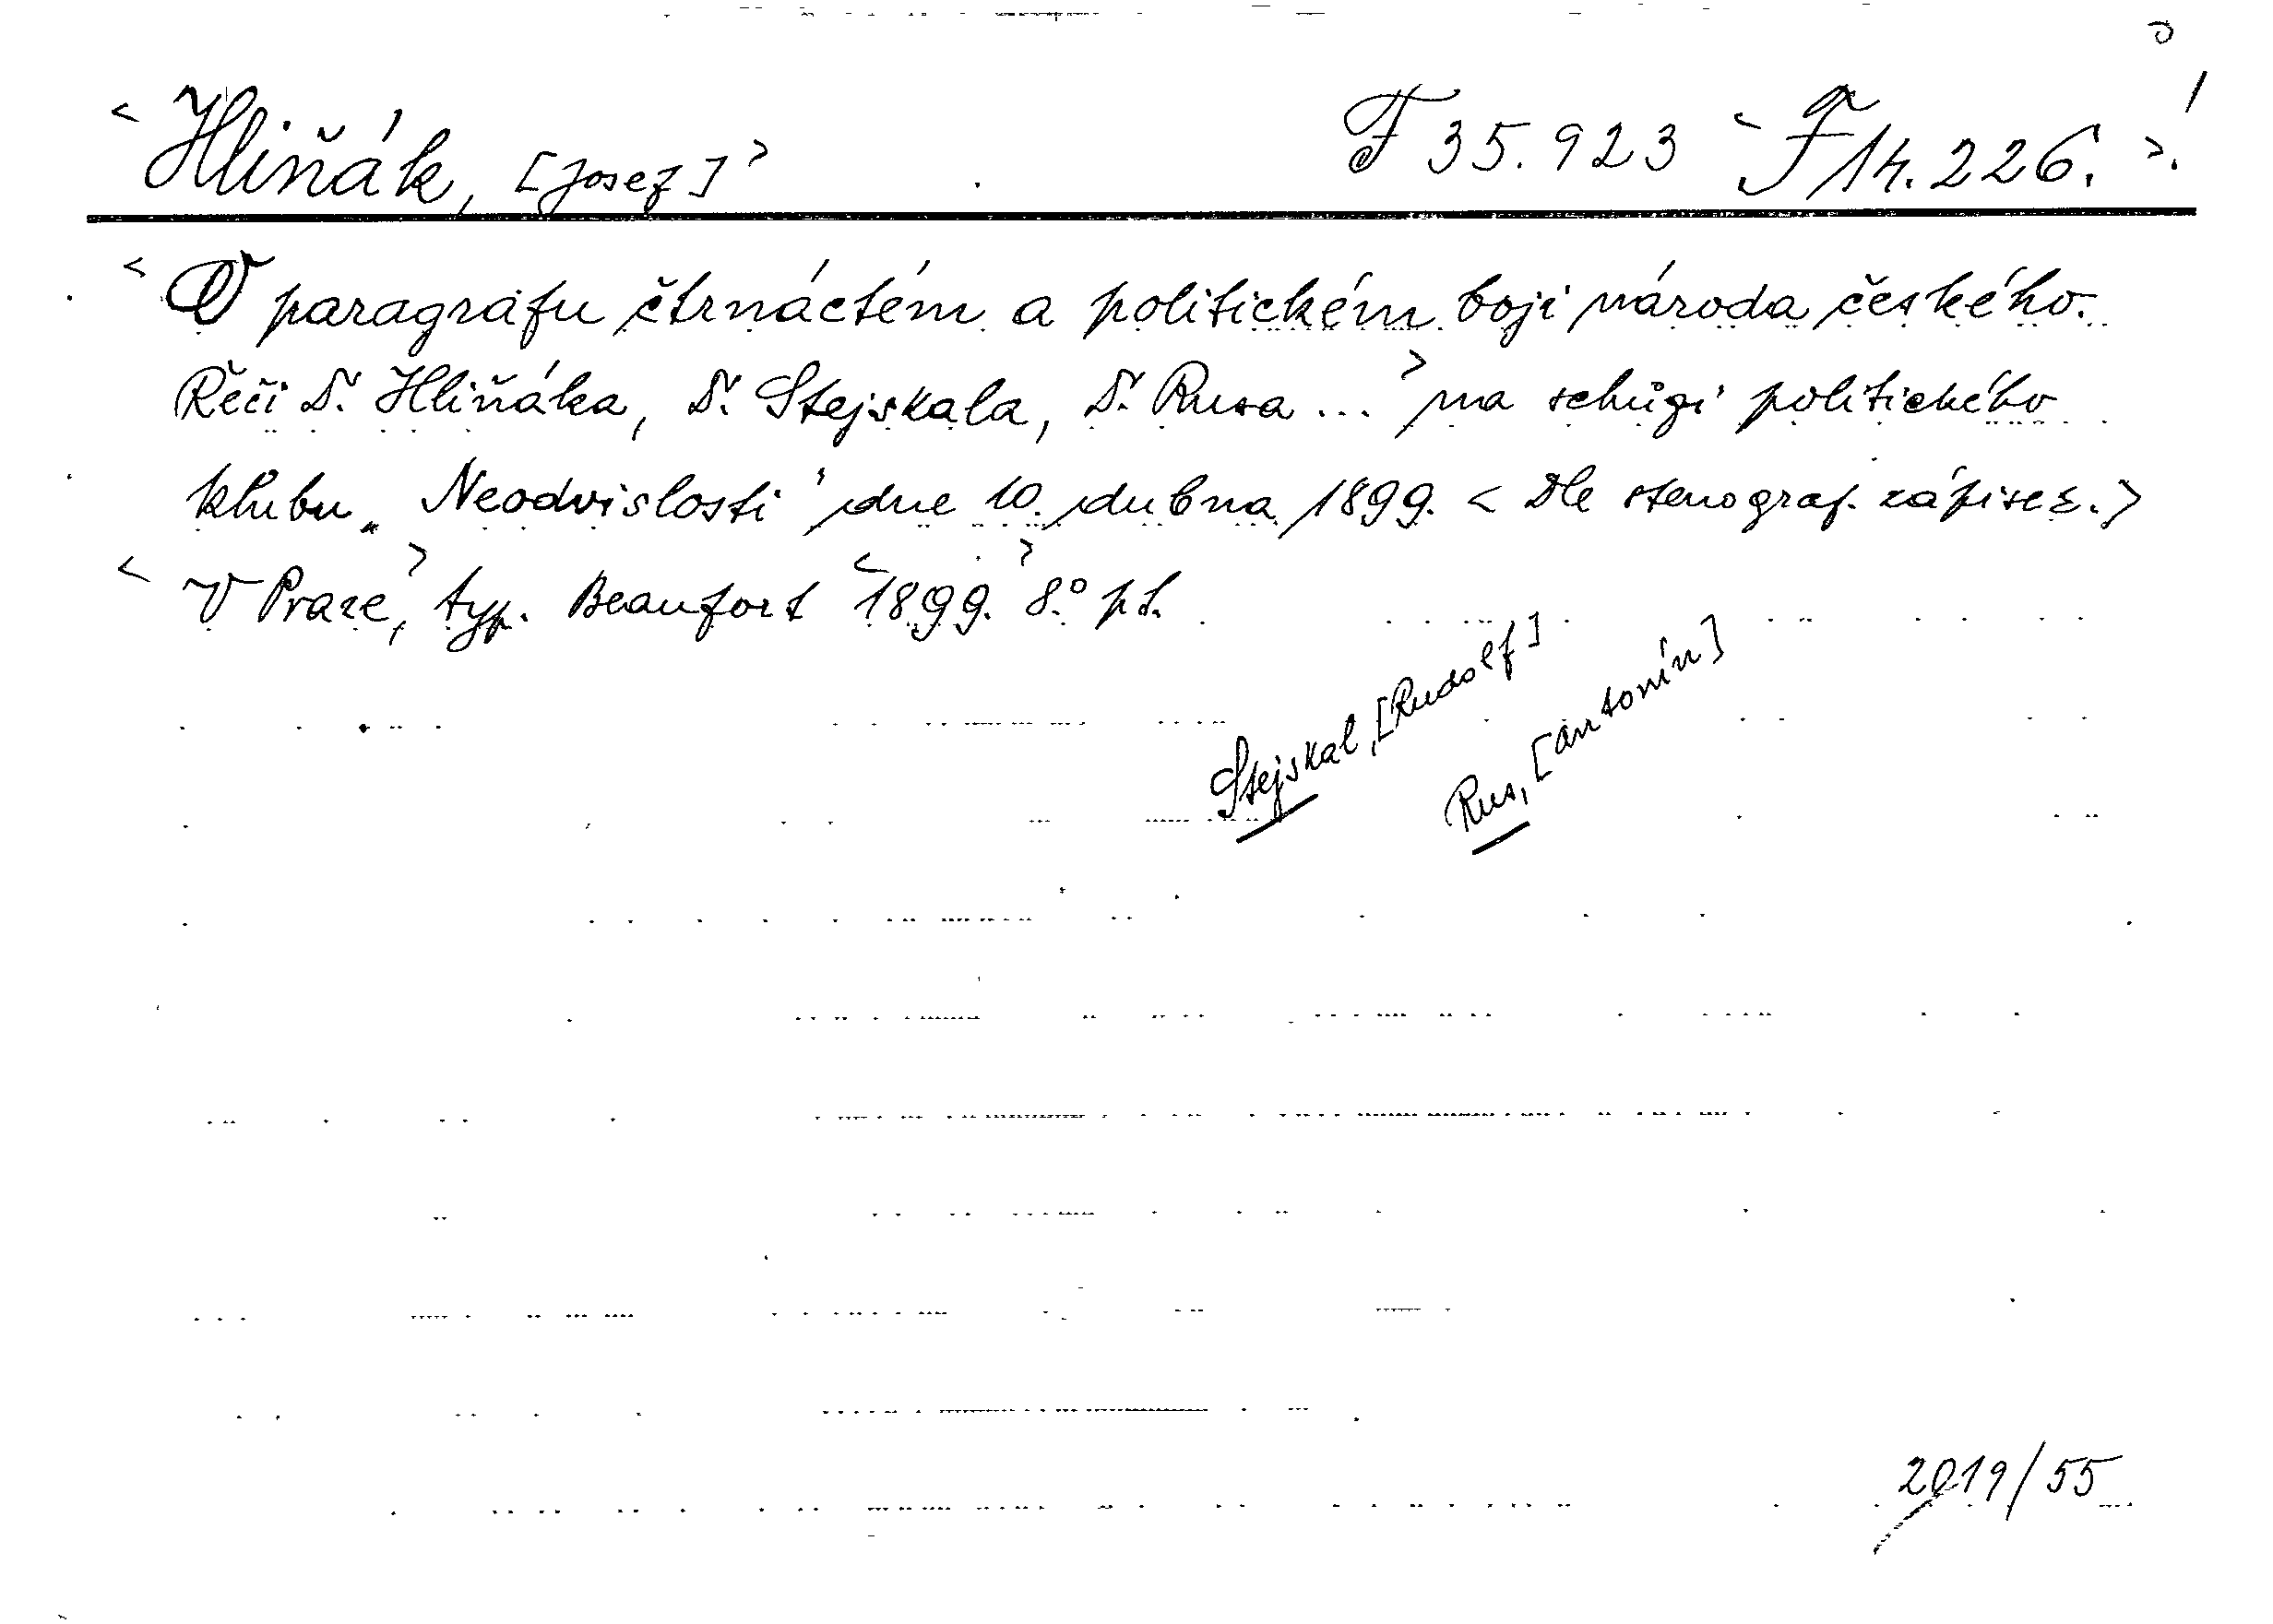 < Hliňák, [Josef] > F 35.923 < F 14.226. >!
< O paragrafu čtrnáctém a politickém boji národa českého.
Řeči Dr. Hliňáka, Dr. Stejskala, Dr. Rusa ... > na schůzi politického
klubu „Neodvislosti" dne 10. dubna 1899. < Dle stenograf. zápisek. >
< V Praze, > typ. Beaufort < 1899. > 8.° pł.
Stejskal, [Rudolf]
Rus, [Antonín]
2019/55